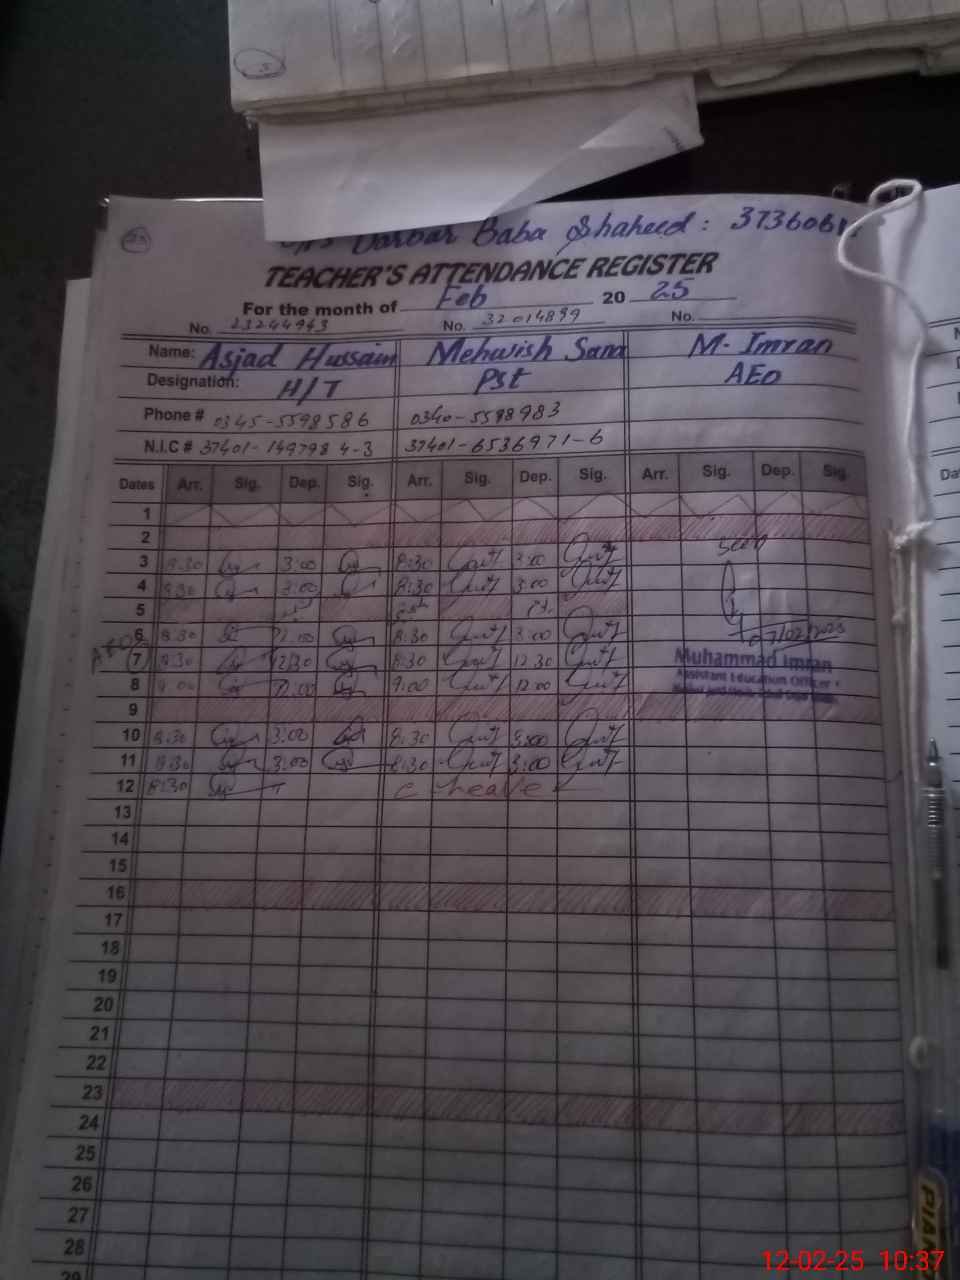 Darbar Baba Shaheed: 3736061
TEACHER'S ATTENDANCE REGISTER
For the month of Feb 20 25
No. 23244943 No. 32014899 No.
Name: Asjad Hussain Mehwish Sana M. Imran
Designation: H/T Pst AEO
Phone # 0345-5598586 0340-5598983
N.I.C # 37401-1497984-3 37401-6536971-6
Dates Arr. Sig. Dep. Sig. Arr. Sig. Dep. Sig. Arr. Sig. Dep. Sig.
1
2
3 8:30 3:00 8:30 3:00 Seen
4 8:30 3:00 8:30 3:00
5
6 8:30 8:30 3:00 7/02/2025
7 8:30 12:30 8:30 12.30 Muhammad Imran
Assistant Education Officer
8 9:00 12:00 9:00 12:00
9
10 8:30 3:00 8:30 3:00
11 8:30 3:00 8:30 3:00
12 8:30 C. Leave
13
14
15
16
17
18
19
20
21
22
23
24
25
26
27
28
29
PIAN
12-02-25 10:37